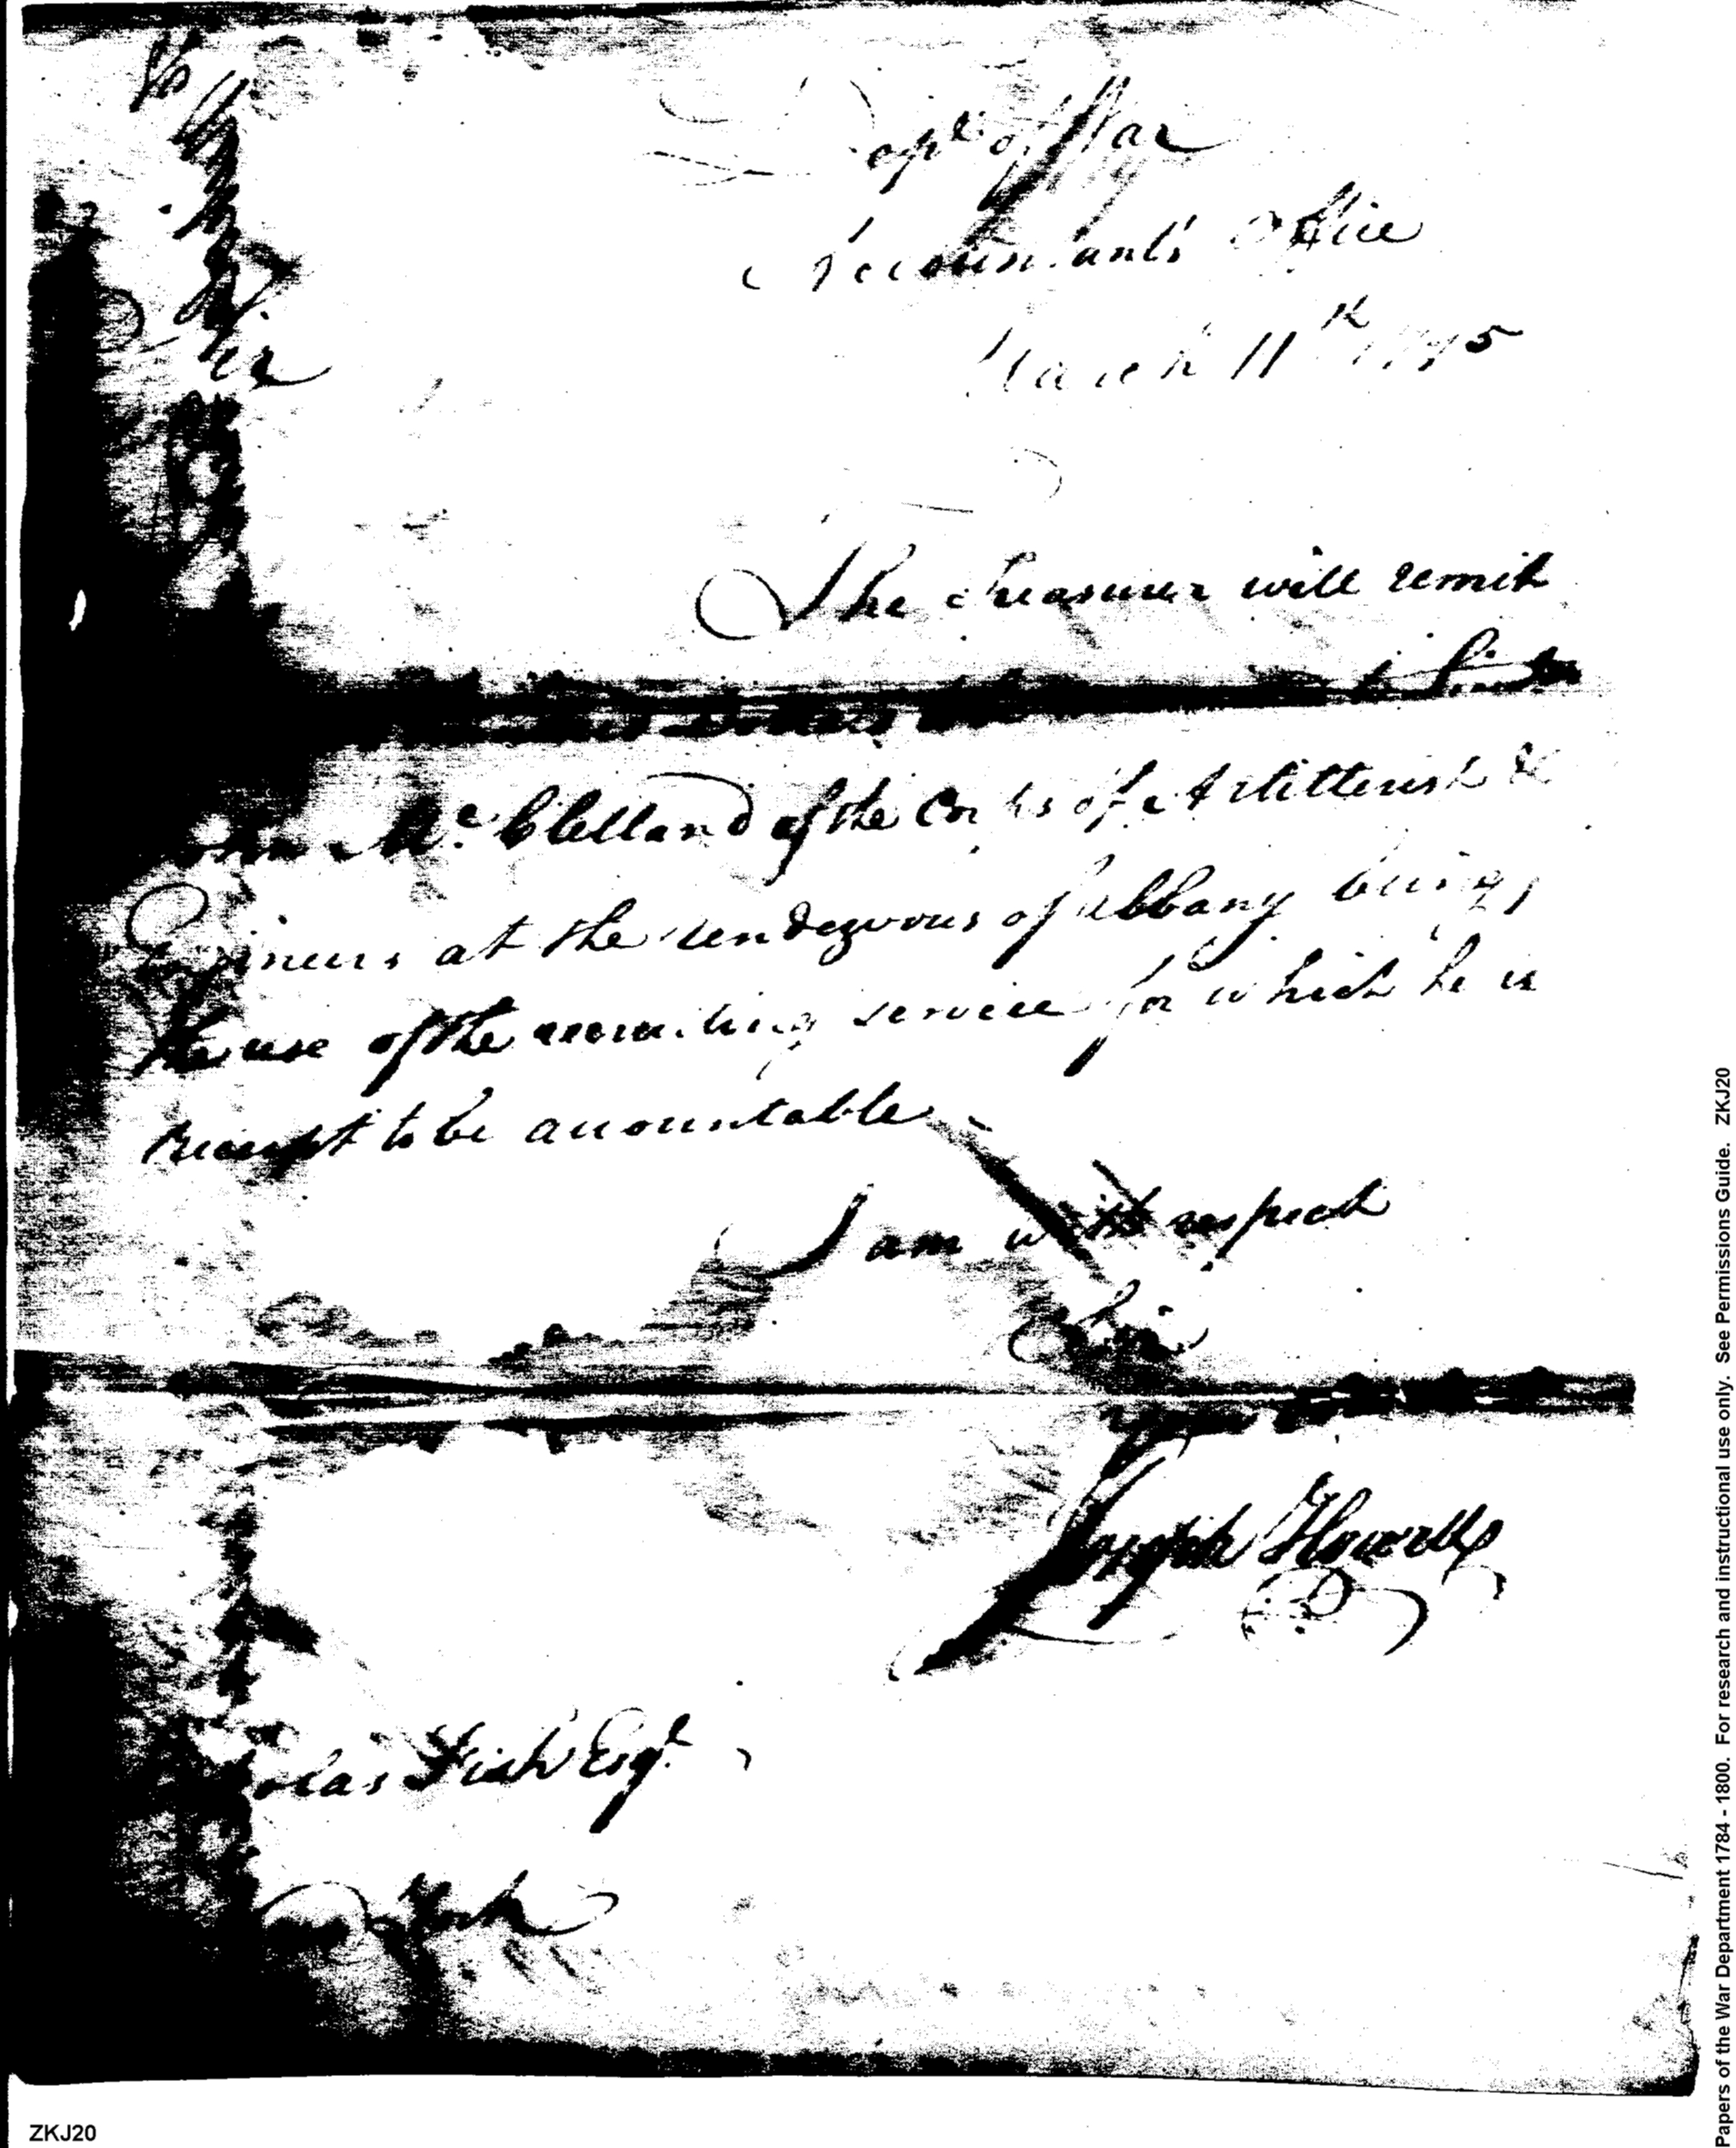 Dept. of War
Accountants Office
March 11th 1795
Sir
The Treasurer will remit
dollars to Lieut
John Mc Clelland of the Corps of Artillerist &
Engineers at the rendezvous of Albany being
the use of the recruiting service for which he is
to be accountable
I am with respect
Sir
Your
Joseph Howell
olas Fish Esqr.
New York
ZKJ20
Papers of the War Department 1784 - 1800. For research and instructional use only. See Permissions Guide. ZKJ20